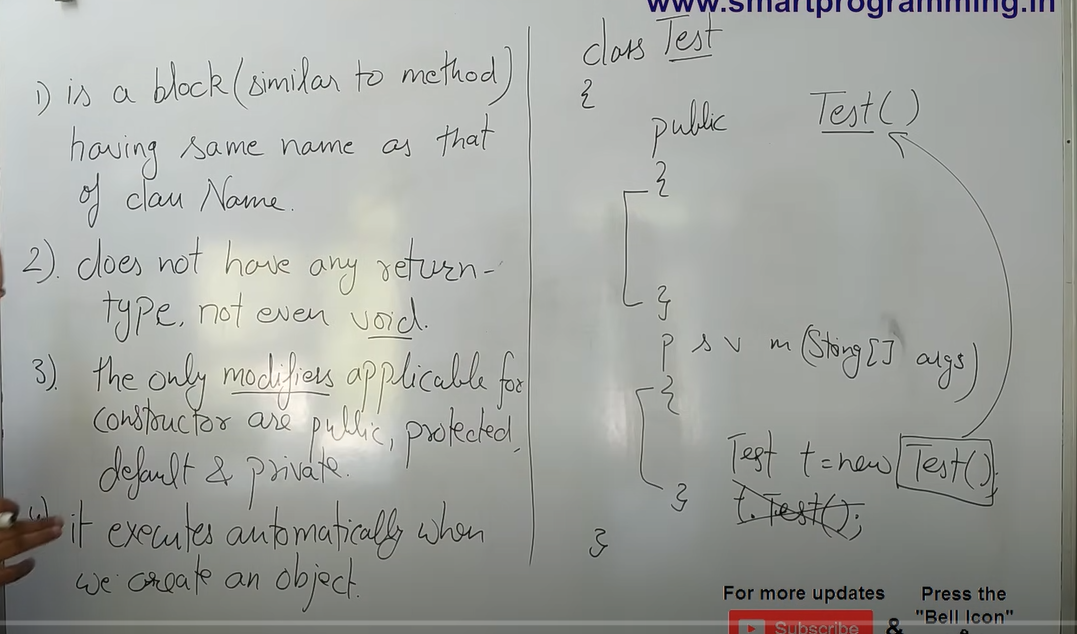 www.smartprogramming.in
1) is a block (similar to method)
having same name as that
of class Name.
2). does not have any return-
type, not even void.
3). the only modifiers applicable for
constructor are public, protected,
default & private.
4) it executes automatically when
we create an object.
class Test
{
public Test()
{
}
p s v m (String[] args)
{
Test t = new Test();
t.Test();
}
}
For more updates
Subscribe
&
Press the
"Bell Icon"